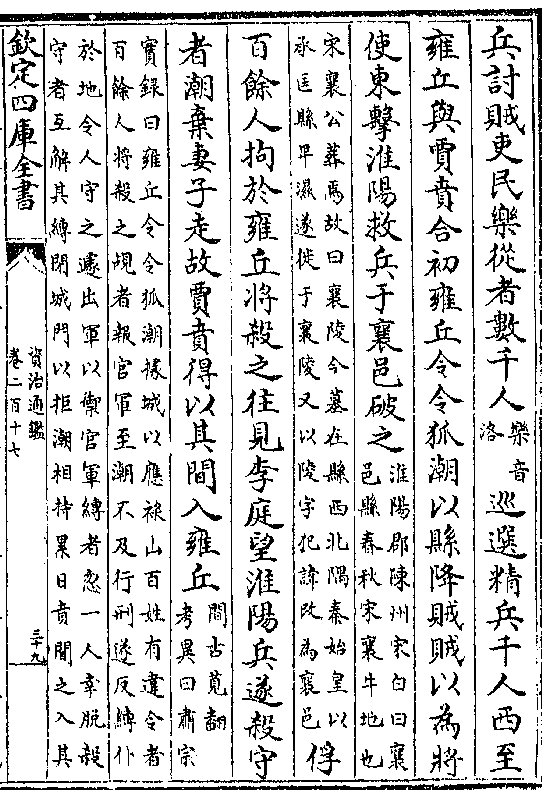 兵討賊吏民樂從者數千人
樂音
洛
巡選精兵千人西至
雍丘與賈賁合初雍丘令令狐潮以縣降賊賊以為將
使東擊淮陽救兵于襄邑破之
淮陽郡陳州宋白曰襄
邑縣春秋宋襄牛地也
宋襄公葬焉故曰襄陵今墓在縣西北隅秦始皇以
承匡縣卑濕遂徙于襄陵又以陵字犯諱改為襄邑
俘
百餘人拘於雍丘將殺之往見李庭望淮陽兵遂殺守
者潮棄妻子走故賈賁得以其間入雍丘
間古莧翻
考異曰肅宗
實録曰雍丘令令狐潮據城以應禄山百姓有違令者
百餘人將殺之覘者報官軍至潮不及行刑遂反縛仆
於地令人守之遽出軍以禦官軍縛者忽一人幸脱殺
守者互解其縛閉城門以拒潮相持累日賁聞之入其
欽定四庫全書
資治通鑑
卷二百十七
三十九